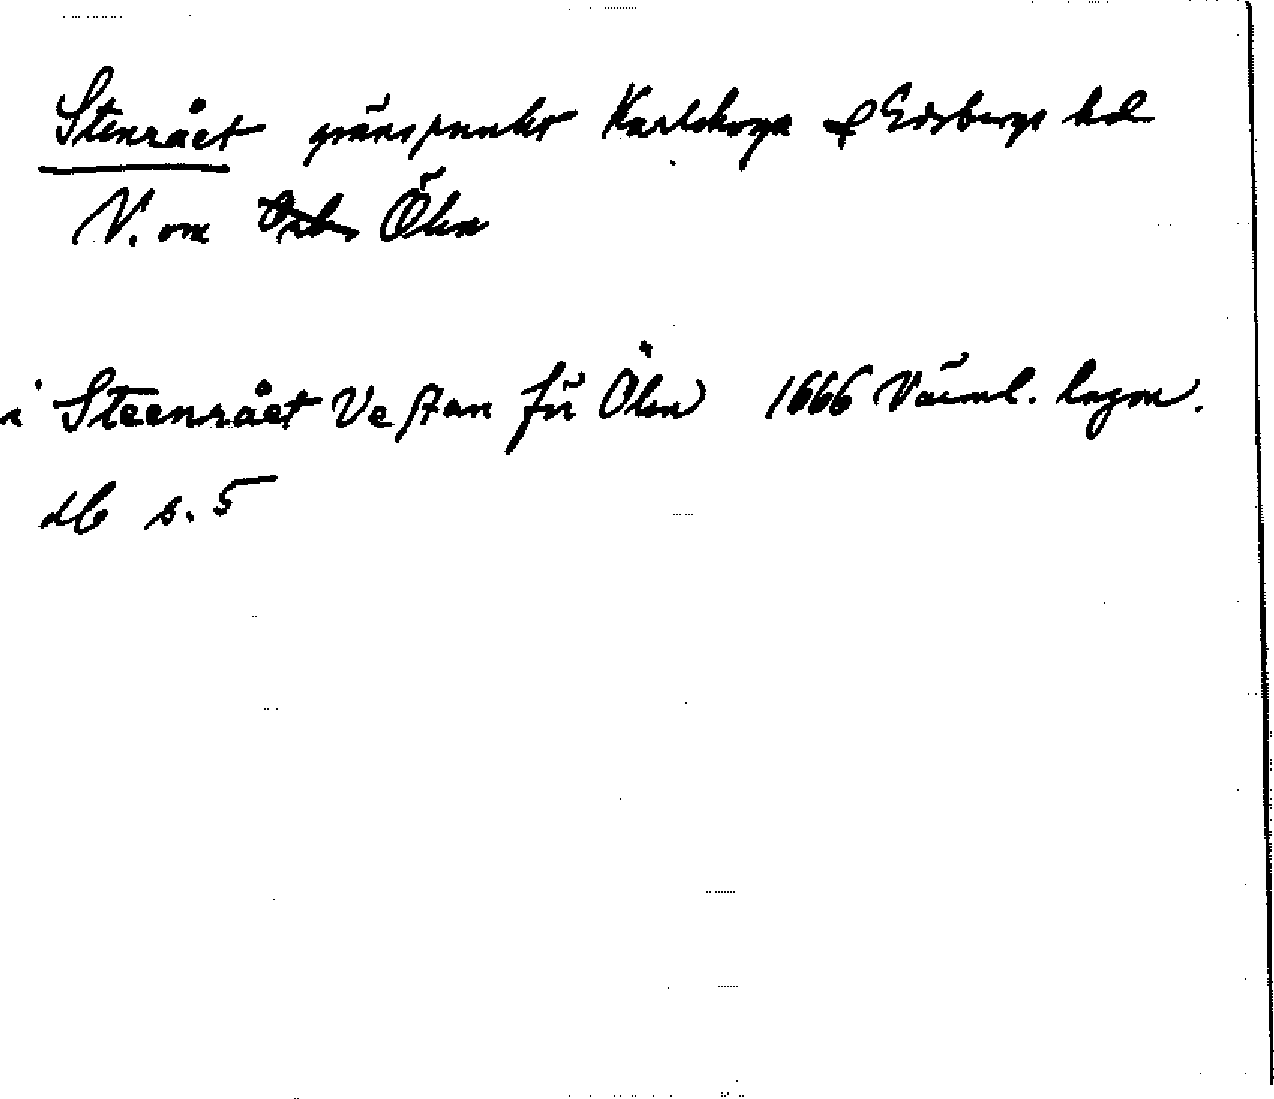 Stenrået gränspunkt Karlskoga & Edsbergs hd
V. om Ölen
i Steenrået Vestan för Ölen 1666 Värml. lagm.
db s. 5